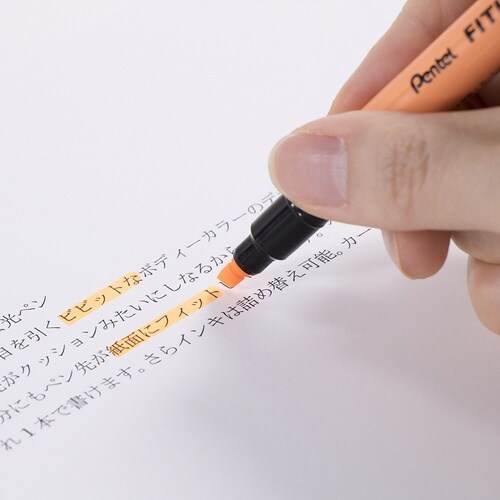 Pentel FIT
光ペン
目を引くビビットなボディーカラーのデ
がクッションみたいにしなるから
分にもペン先が紙面にフィット
れ1本で書けます。さらインキは詰め替え可能。カー